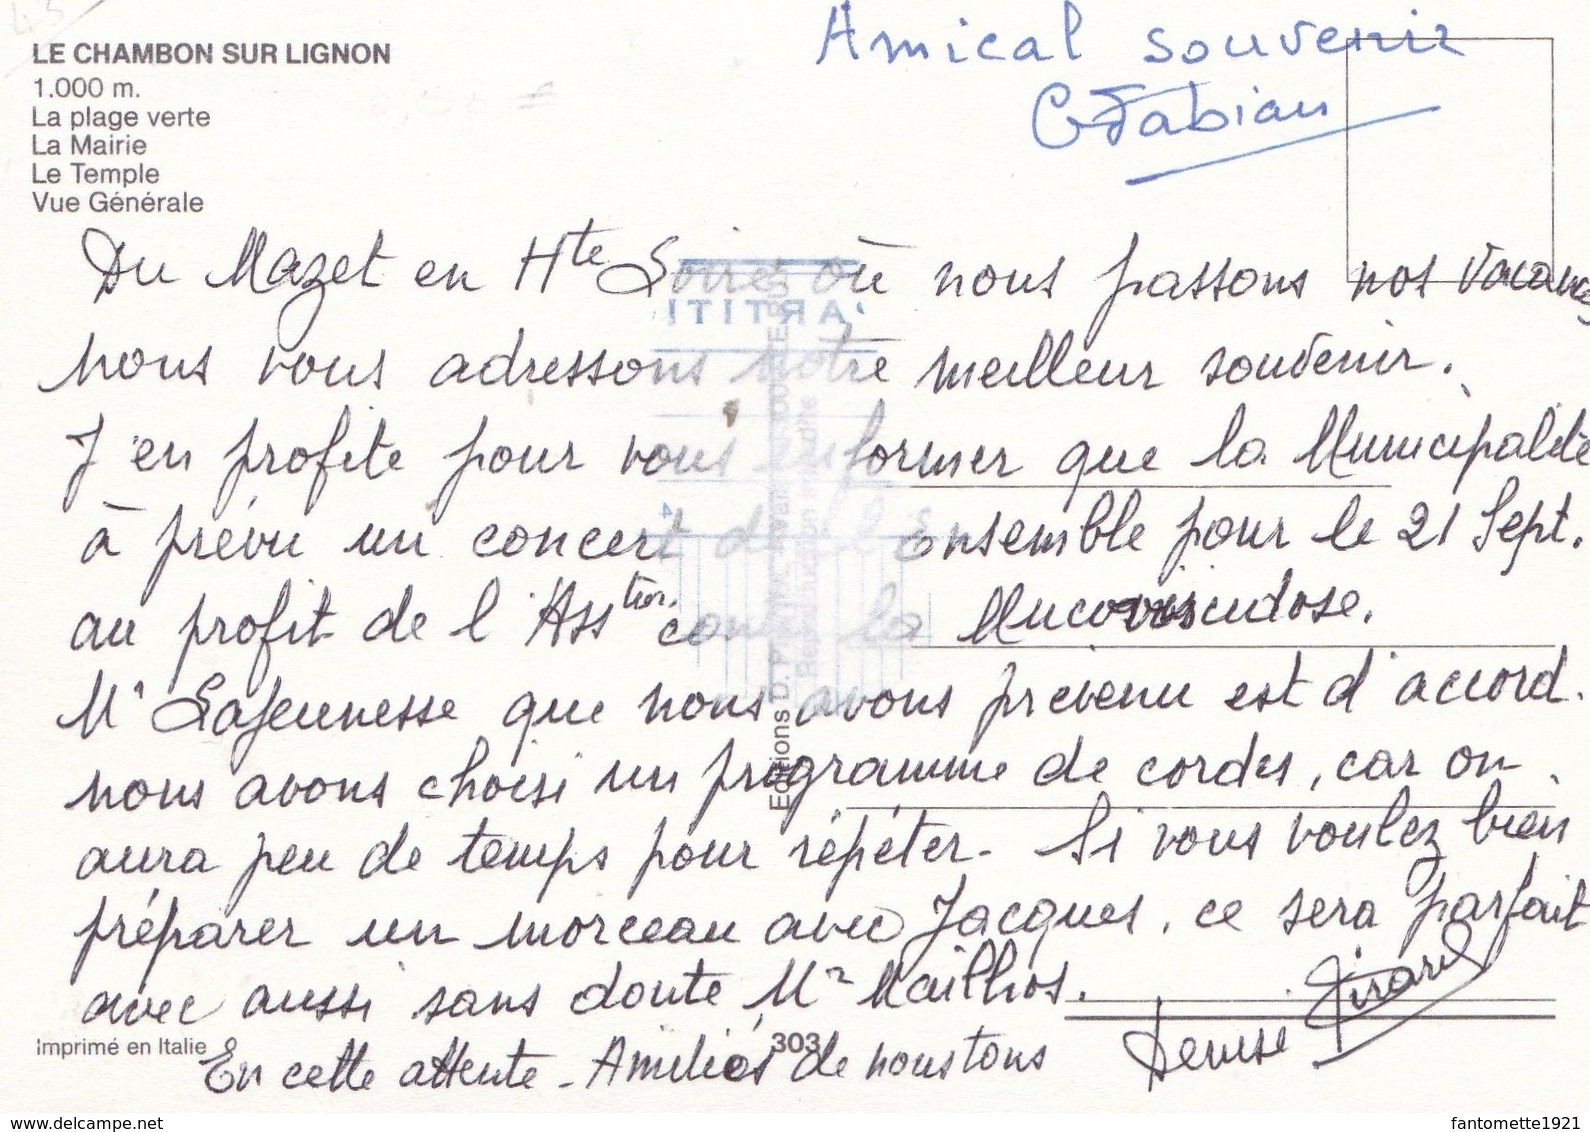 LE CHAMBON SUR LIGNON
1.000 m.
La plage verte
La Mairie
Le Temple
Vue Générale
Amical souvenir
G Fabian
Du Mazet en Hte Loire, où nous passons nos vacances
nous vous adressons notre meilleur souvenir.
J'en profite pour vous informer que la Municipalité
à prévu un concert de l'Ensemble pour le 21 Sept.
au profit de l'Asstion. contre la Mucoviscidose.
Mr Lajeunesse que nous avons prévenu est d'accord.
nous avons choisi un programme de cordes, car on
aura peu de temps pour répéter. Si vous voulez bien
préparer un morceau avec Jacques, ce sera parfait
avec aussi sans doute Mr Mailhos.
En cette attente - Amitiés de nous tous
Denise Girard
Editions D.
Imprimé en Italie
303
www.delcampe.net
fantomette1921